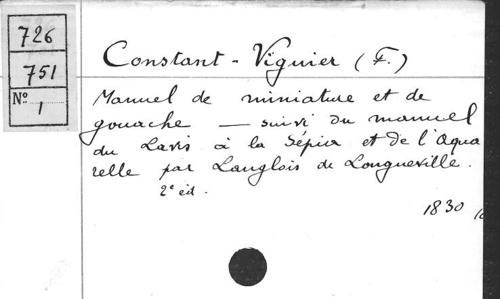 726
751
No 1
Constant-Viguier (F.)
Manuel de miniature et de
gouache — suivi du manuel
du Lavis à la Sépia et de l'Aqua
relle par Langlois de Longueville.
2e éd.
1830